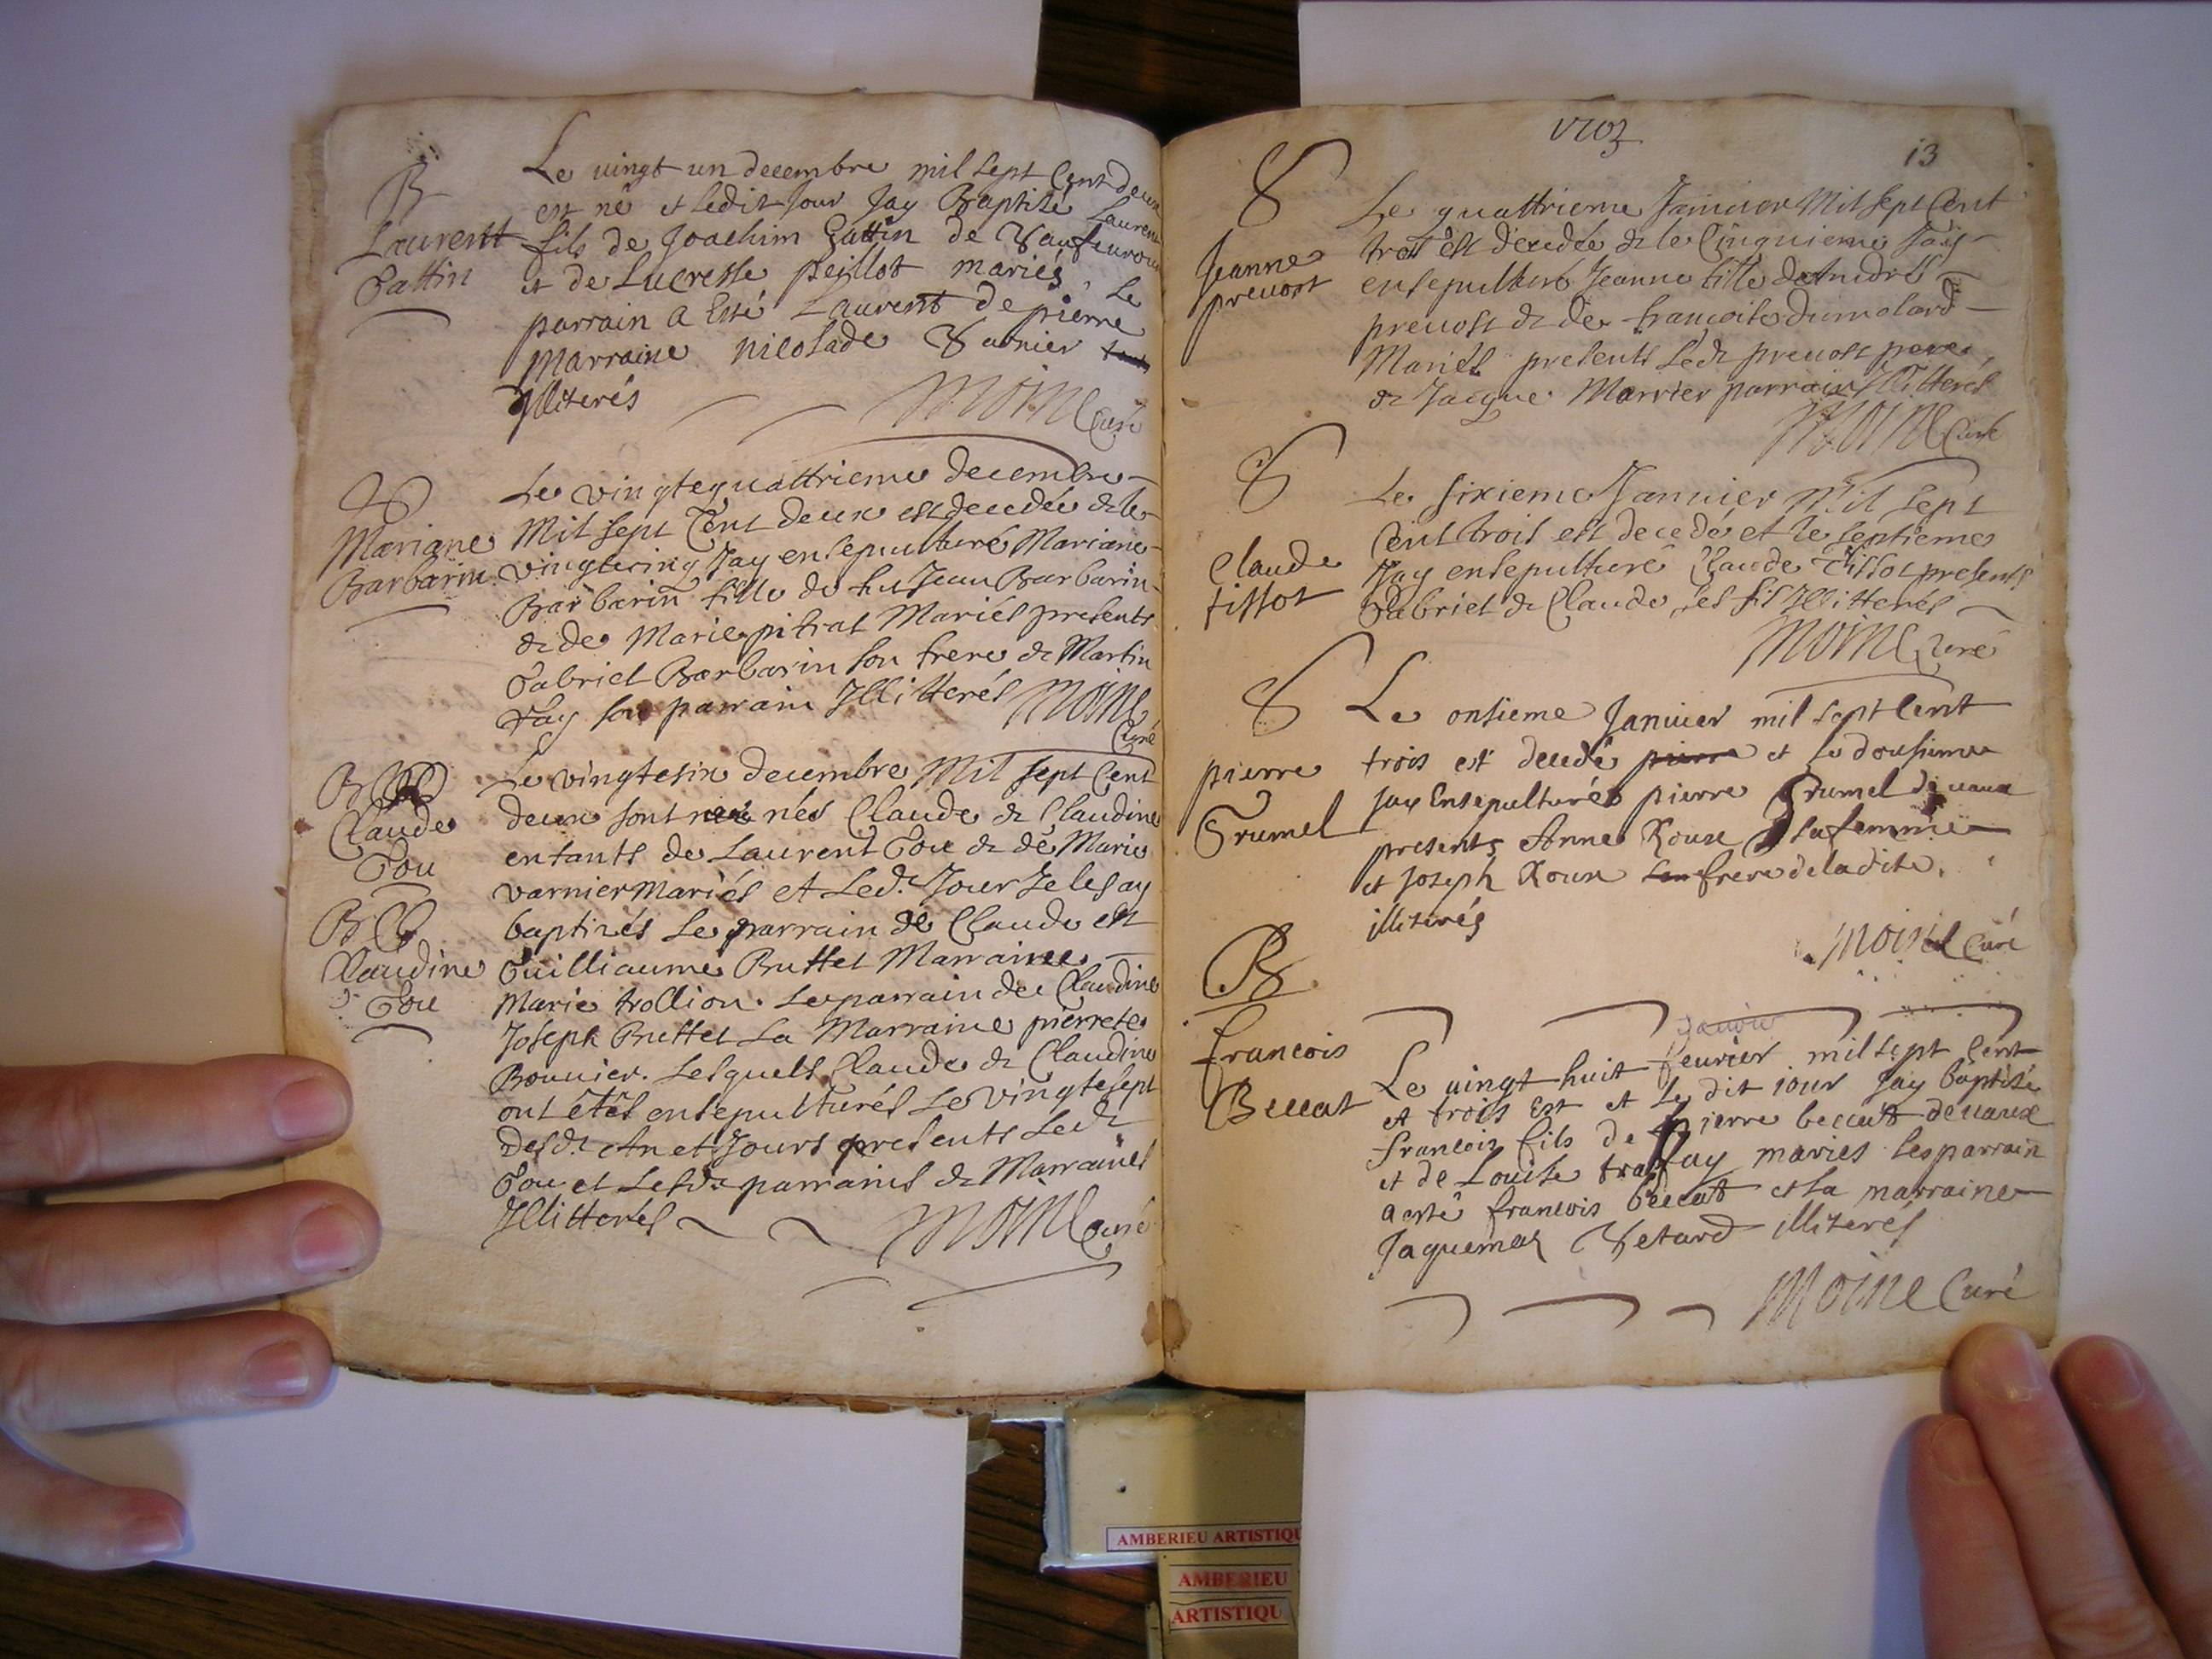 B
Laurent
Gattin
Le vingt un decembre mil sept Cent deux
est né et ledit Jour Jay Baptisé Laurent
fils de Joachim Gattin de
et de Lucresse peillot mariés Le
parrain a Esté Laurent de pierre
marraine nicolade Varnier
Illiterés
Moine Curé
S
Mariane
Barbarin
Le vingtequattrieme decembre
Mil sept Cent deux est decedée & le
vingtecinq Jay ensepulturé Mariane
Barbarin fille de fu Jean Barbarin
& de Marie pitrat Mariés presents
Gabriel Barbarin son frere & Martin
Fay son parrain Illitterés Moine
Curé
B
Claude
Gou
B
Claudine
Gou
Le vingtesix decembre Mil sept Cent
deux sont nés Claude & Claudine
enfants de Laurent Gou & de Marie
varnier Mariés et Led.t Jour Je les ay
baptisés Le parrain de Claude est
Guilliaume Buttet Marraine
Marie trollion. Le parrain de Claudine
Joseph Buttet La Marraine pierrete
Bouuier. Lesquels Claude & Claudine
ont étés ensepulturés Le vingtesept
desd. An et Jours presents Led.t
Gou et Lesd. parrains & Marraines
Illitterés
Moine Curé
1703
13
S
Jeanne
preuost
Le quattrieme Januier Mil sept Cent
trois est decedée & le Cinquieme Jay
ensepulturé Jeanne fille d'André
preuost & de francoise dumolard
Mariés presents Led.t preuost pere,
& Jacque Marrier parrain Illitterés
Moine Curé
S
Claude
tissot
Le sixieme Januier Mil sept
Cent trois est decedé et le septieme
Jay ensepulturé Claude Tissot presents
Gabriel & Claude ses fils Illitterés
Moine Curé
S
pierre
Grumel
Le onsieme Januier mil sept Cent
trois est decedé pierre et le dousieme
Jay Ensepulturé pierre Grumel de uaux
presents Anne Roux sa femme
et Joseph Roux son frere de la dite.
illiterés
Moine Curé
B
francois
Beccat
Januier
Le uingt huit feurier mil sept Cent
et trois Est et Le dit iour Jay baptisé
francois fils de pierre beccat de uaux
et de Louise mariés Les parrain
a esté francois beccat et la marraine
Jaquema Vetard illiterés
Moine Curé
AMBERIEU ARTISTIQU
AMBERIEU
ARTISTIQU